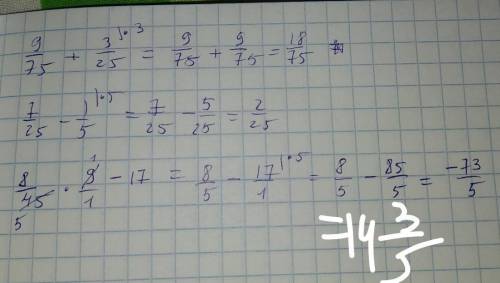 9/75 + 3/25 |·3 = 9/75 + 9/75 = 18/75
7/25 - 1/5 |·5 = 7/25 - 5/25 = 2/25
8/45 5 · 9/1 1 - 17 = 8/5 - 17/1 |·5 = 8/5 - 85/5 = -73/5
=14 3/5